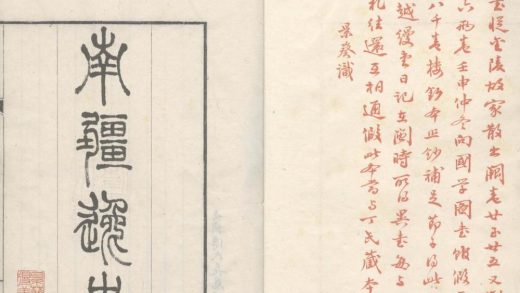 書從金陵故家散出闕卷廿至廿五又
六兩卷壬申仲冬向國學圖書館假
八千卷樓鈔本照鈔補足節子得此
越縵堂日記在閩時所得異書每與
札往還互相通假此本當與丁氏藏本
景葵識
南疆逸史